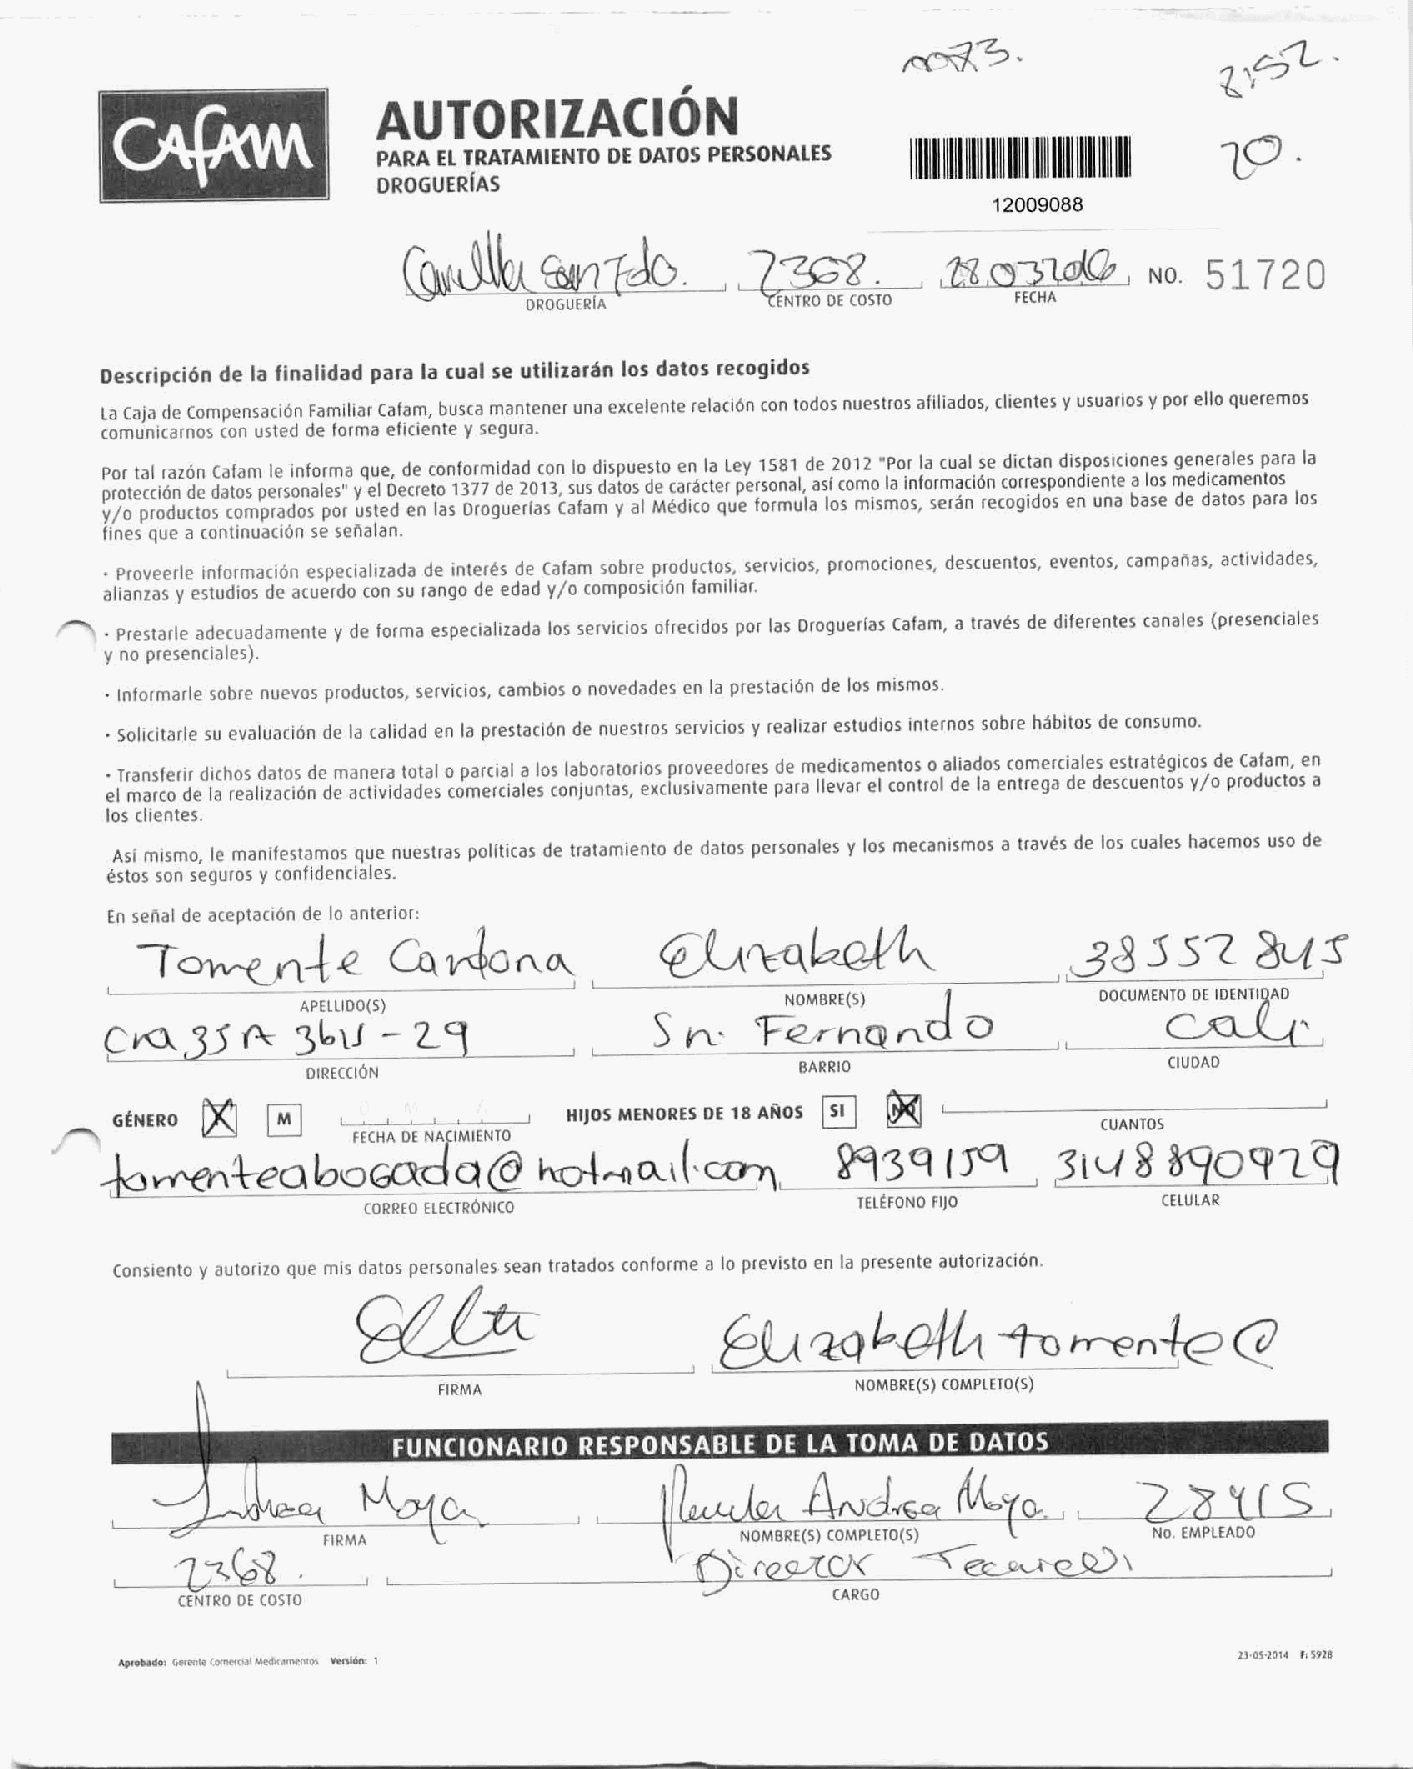 8152.
CAFAM
AUTORIZACIÓN
PARA EL TRATAMIENTO DE DATOS PERSONALES
DROGUERÍAS
20.
12009088
2368. NO. 51720
DROGUERÍA CENTRO DE COSTO FECHA
Descripción de la finalidad para la cual se utilizarán los datos recogidos
La Caja de Compensación Familiar Cafam, busca mantener una excelente relación con todos nuestros afiliados, clientes y usuarios y por ello queremos
comunicarnos con usted de forma eficiente y segura.
Por tal razón Cafam le informa que, de conformidad con lo dispuesto en la Ley 1581 de 2012 "Por la cual se dictan disposiciones generales para la
protección de datos personales" y el Decreto 1377 de 2013, sus datos de carácter personal, así como la información correspondiente a los medicamentos
y/o productos comprados por usted en las Droguerías Cafam y al Médico que formula los mismos, serán recogidos en una base de datos para los
fines que a continuación se señalan.
· Proveerle información especializada de interés de Cafam sobre productos, servicios, promociones, descuentos, eventos, campañas, actividades,
alianzas y estudios de acuerdo con su rango de edad y/o composición familiar.
· Prestarle adecuadamente y de forma especializada los servicios ofrecidos por las Droguerías Cafam, a través de diferentes canales (presenciales
y no presenciales).
· Informarle sobre nuevos productos, servicios, cambios o novedades en la prestación de los mismos.
· Solicitarle su evaluación de la calidad en la prestación de nuestros servicios y realizar estudios internos sobre hábitos de consumo.
· Transferir dichos datos de manera total o parcial a los laboratorios proveedores de medicamentos o aliados comerciales estratégicos de Cafam, en
el marco de la realización de actividades comerciales conjuntas, exclusivamente para llevar el control de la entrega de descuentos y/o productos a
los clientes.
Así mismo, le manifestamos que nuestras políticas de tratamiento de datos personales y los mecanismos a través de los cuales hacemos uso de
éstos son seguros y confidenciales.
En señal de aceptación de lo anterior:
Tomente Cardona Elizabeth 38552845
APELLIDO(S) NOMBRE(S) DOCUMENTO DE IDENTIDAD
Cra 35A - 29 Sn. Fernando Cali
DIRECCIÓN BARRIO CIUDAD
GÉNERO M D M A HIJOS MENORES DE 18 AÑOS SI NO
FECHA DE NACIMIENTO CUANTOS
tomenteabogada@hotmail.com 8939159 3148890929
CORREO ELECTRÓNICO TELÉFONO FIJO CELULAR
Consiento y autorizo que mis datos personales sean tratados conforme a lo previsto en la presente autorización.
Elizabeth tomente C
FIRMA NOMBRE(S) COMPLETO(S)
FUNCIONARIO RESPONSABLE DE LA TOMA DE DATOS
Andrea Moya Andrea Moya. 28415
FIRMA NOMBRE(S) COMPLETO(S) No. EMPLEADO
2368. Director
CENTRO DE COSTO CARGO
Aprobado: Gerente Comercial Medicamentos Versión: 1 23-05-2014 F: 5928